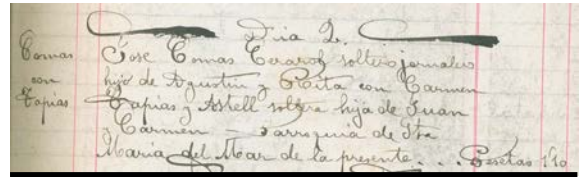 Dia 2.
Comas Jose Comas soltero jornalero
con hijo de Agustin y Rita con Carmen
Tapias Tapias y Astell soltera hija de Juan
y Carmen — Parroquia de Sta
Maria del Mar de la presente . . . Pesetas